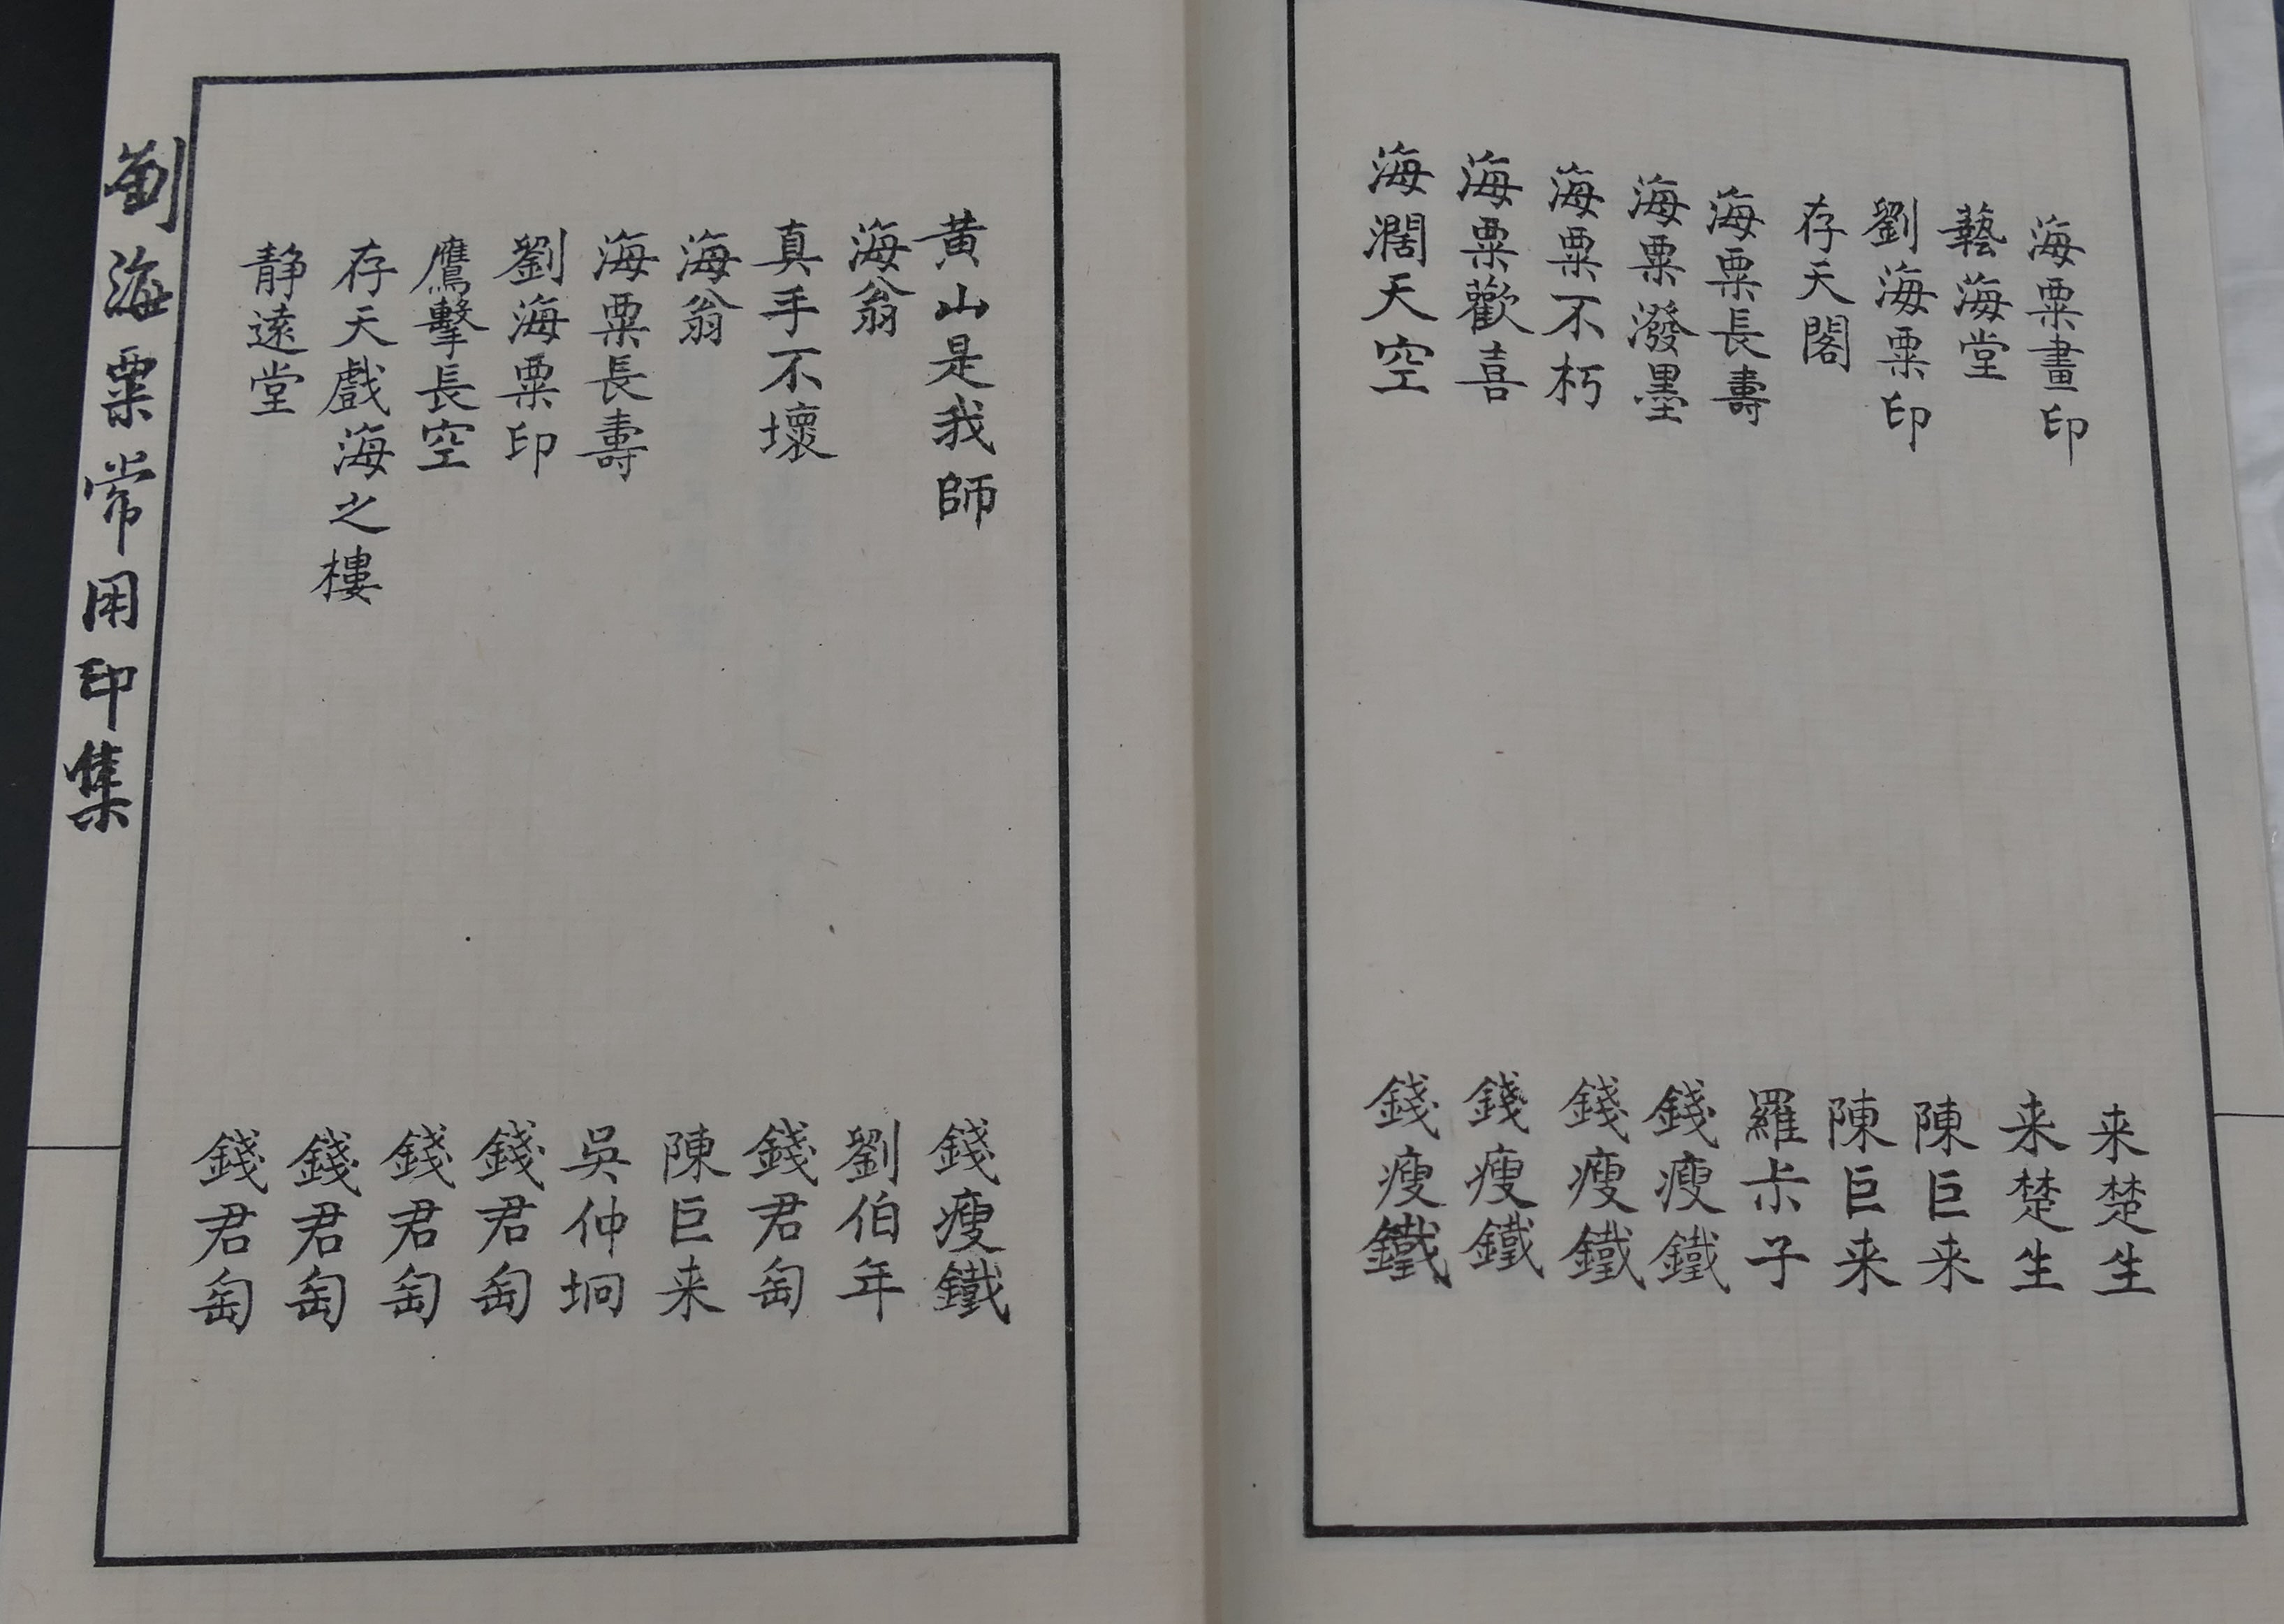 海粟畫印 来楚生
藝海堂 来楚生
劉海粟印 陳巨来
存天閣 陳巨来
海粟長壽 羅尗子
海粟潑墨 錢瘦鐵
海粟不朽 錢瘦鐵
海粟歡喜 錢瘦鐵
海濶天空 錢瘦鐵
黄山是我師 錢瘦鐵
海翁 劉伯年
真手不壞 錢君匋
海翁 陳巨来
海粟長壽 吳仲坰
劉海粟印 錢君匋
鷹擊長空 錢君匋
存天戲海之樓 錢君匋
静遠堂 錢君匋
劉海粟常用印集